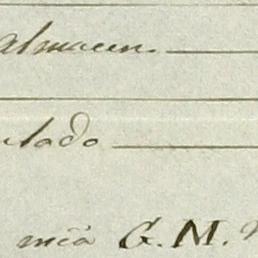 almacen.
lado
mia G. M.